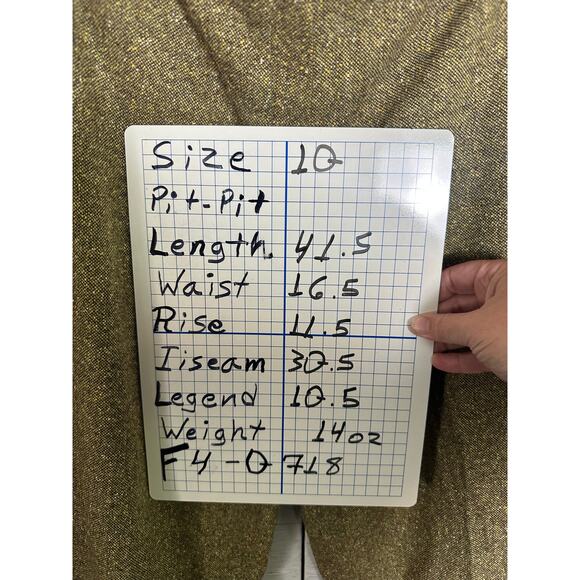 Size 10
Pit-Pit
Length. 41.5
Waist 16.5
Rise 11.5
Iiseam 30.5
Legend 10.5
Weight 14oz
F4-0718